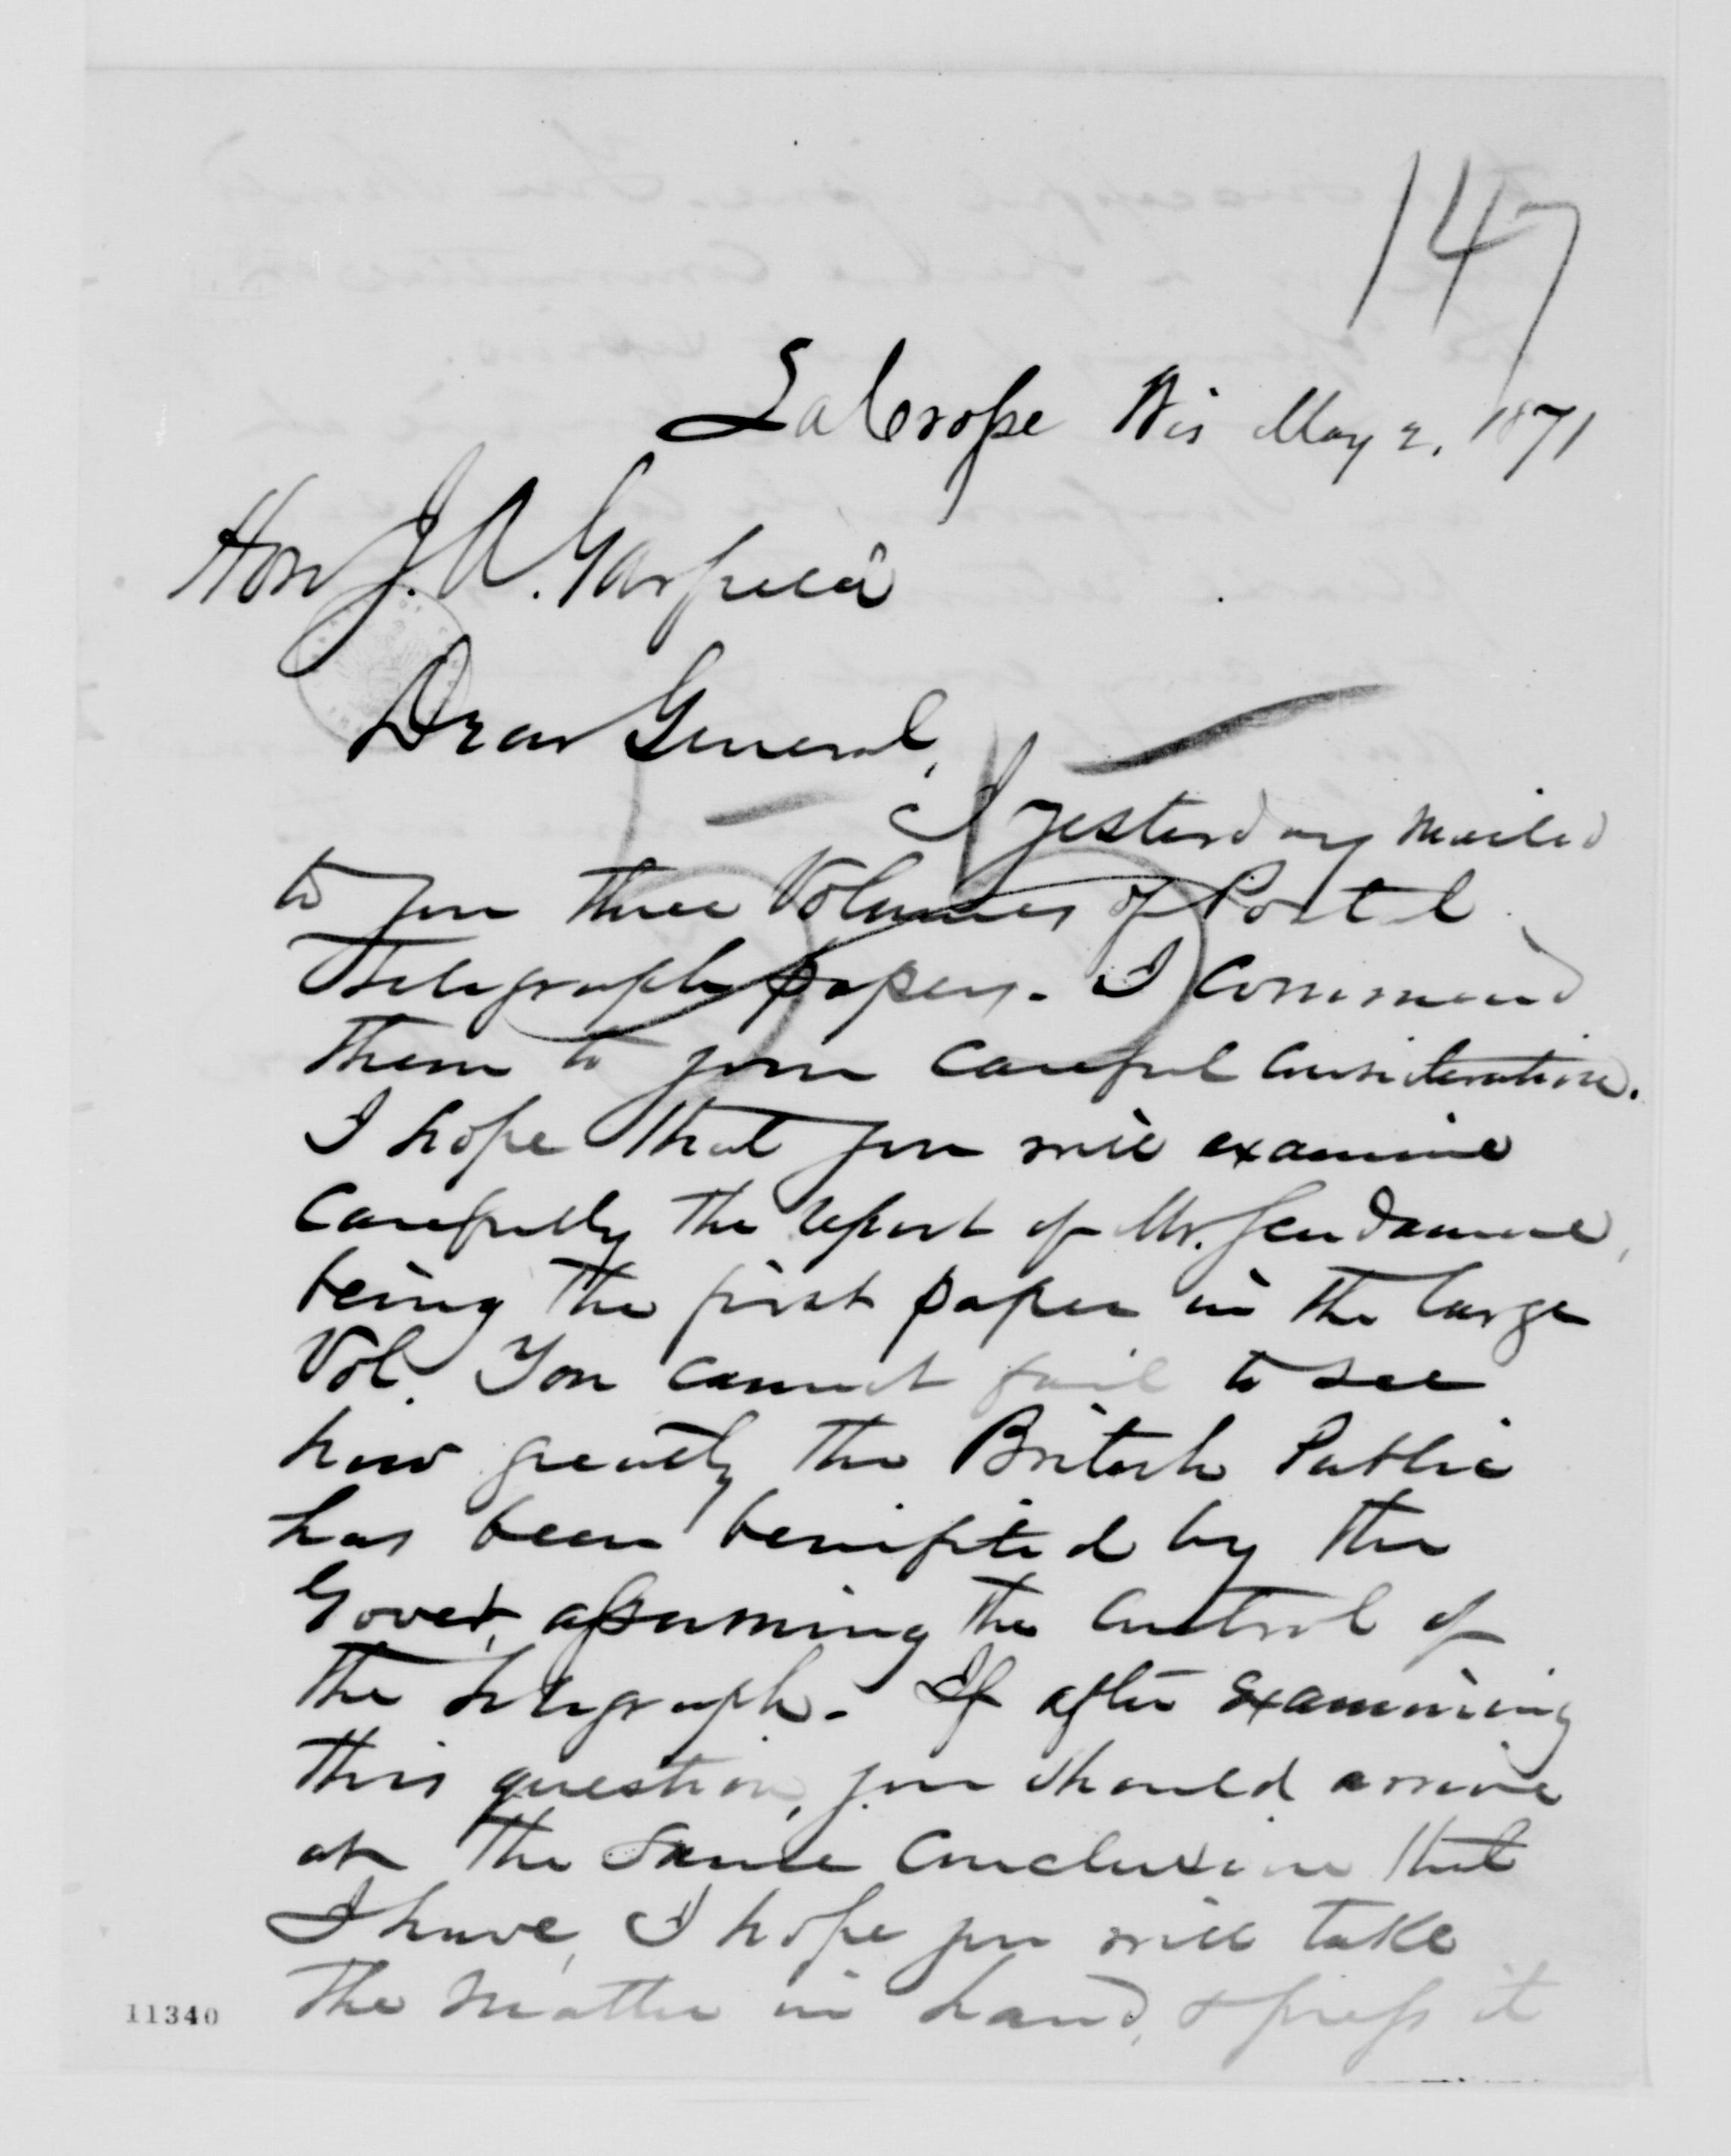 147
LaCrosse Wis May 2, 1871
Hon J. A. Garfield
Dear General,
I yesterday mailed
to you three Volumes of Postal
Telegraph papers. I commend
them to your careful consideration.
I hope that you will examine
carefully the report of Mr. Scudamore,
being the first paper in the large
Vol. You cannot fail to see
how greatly the British Public
has been benifited by the
Govet assuming the control of
the telegraph. If after examining
this question, you should arrive
at the same conclusion that
I have, I hope you will take
the matter in hand, & press it
11340